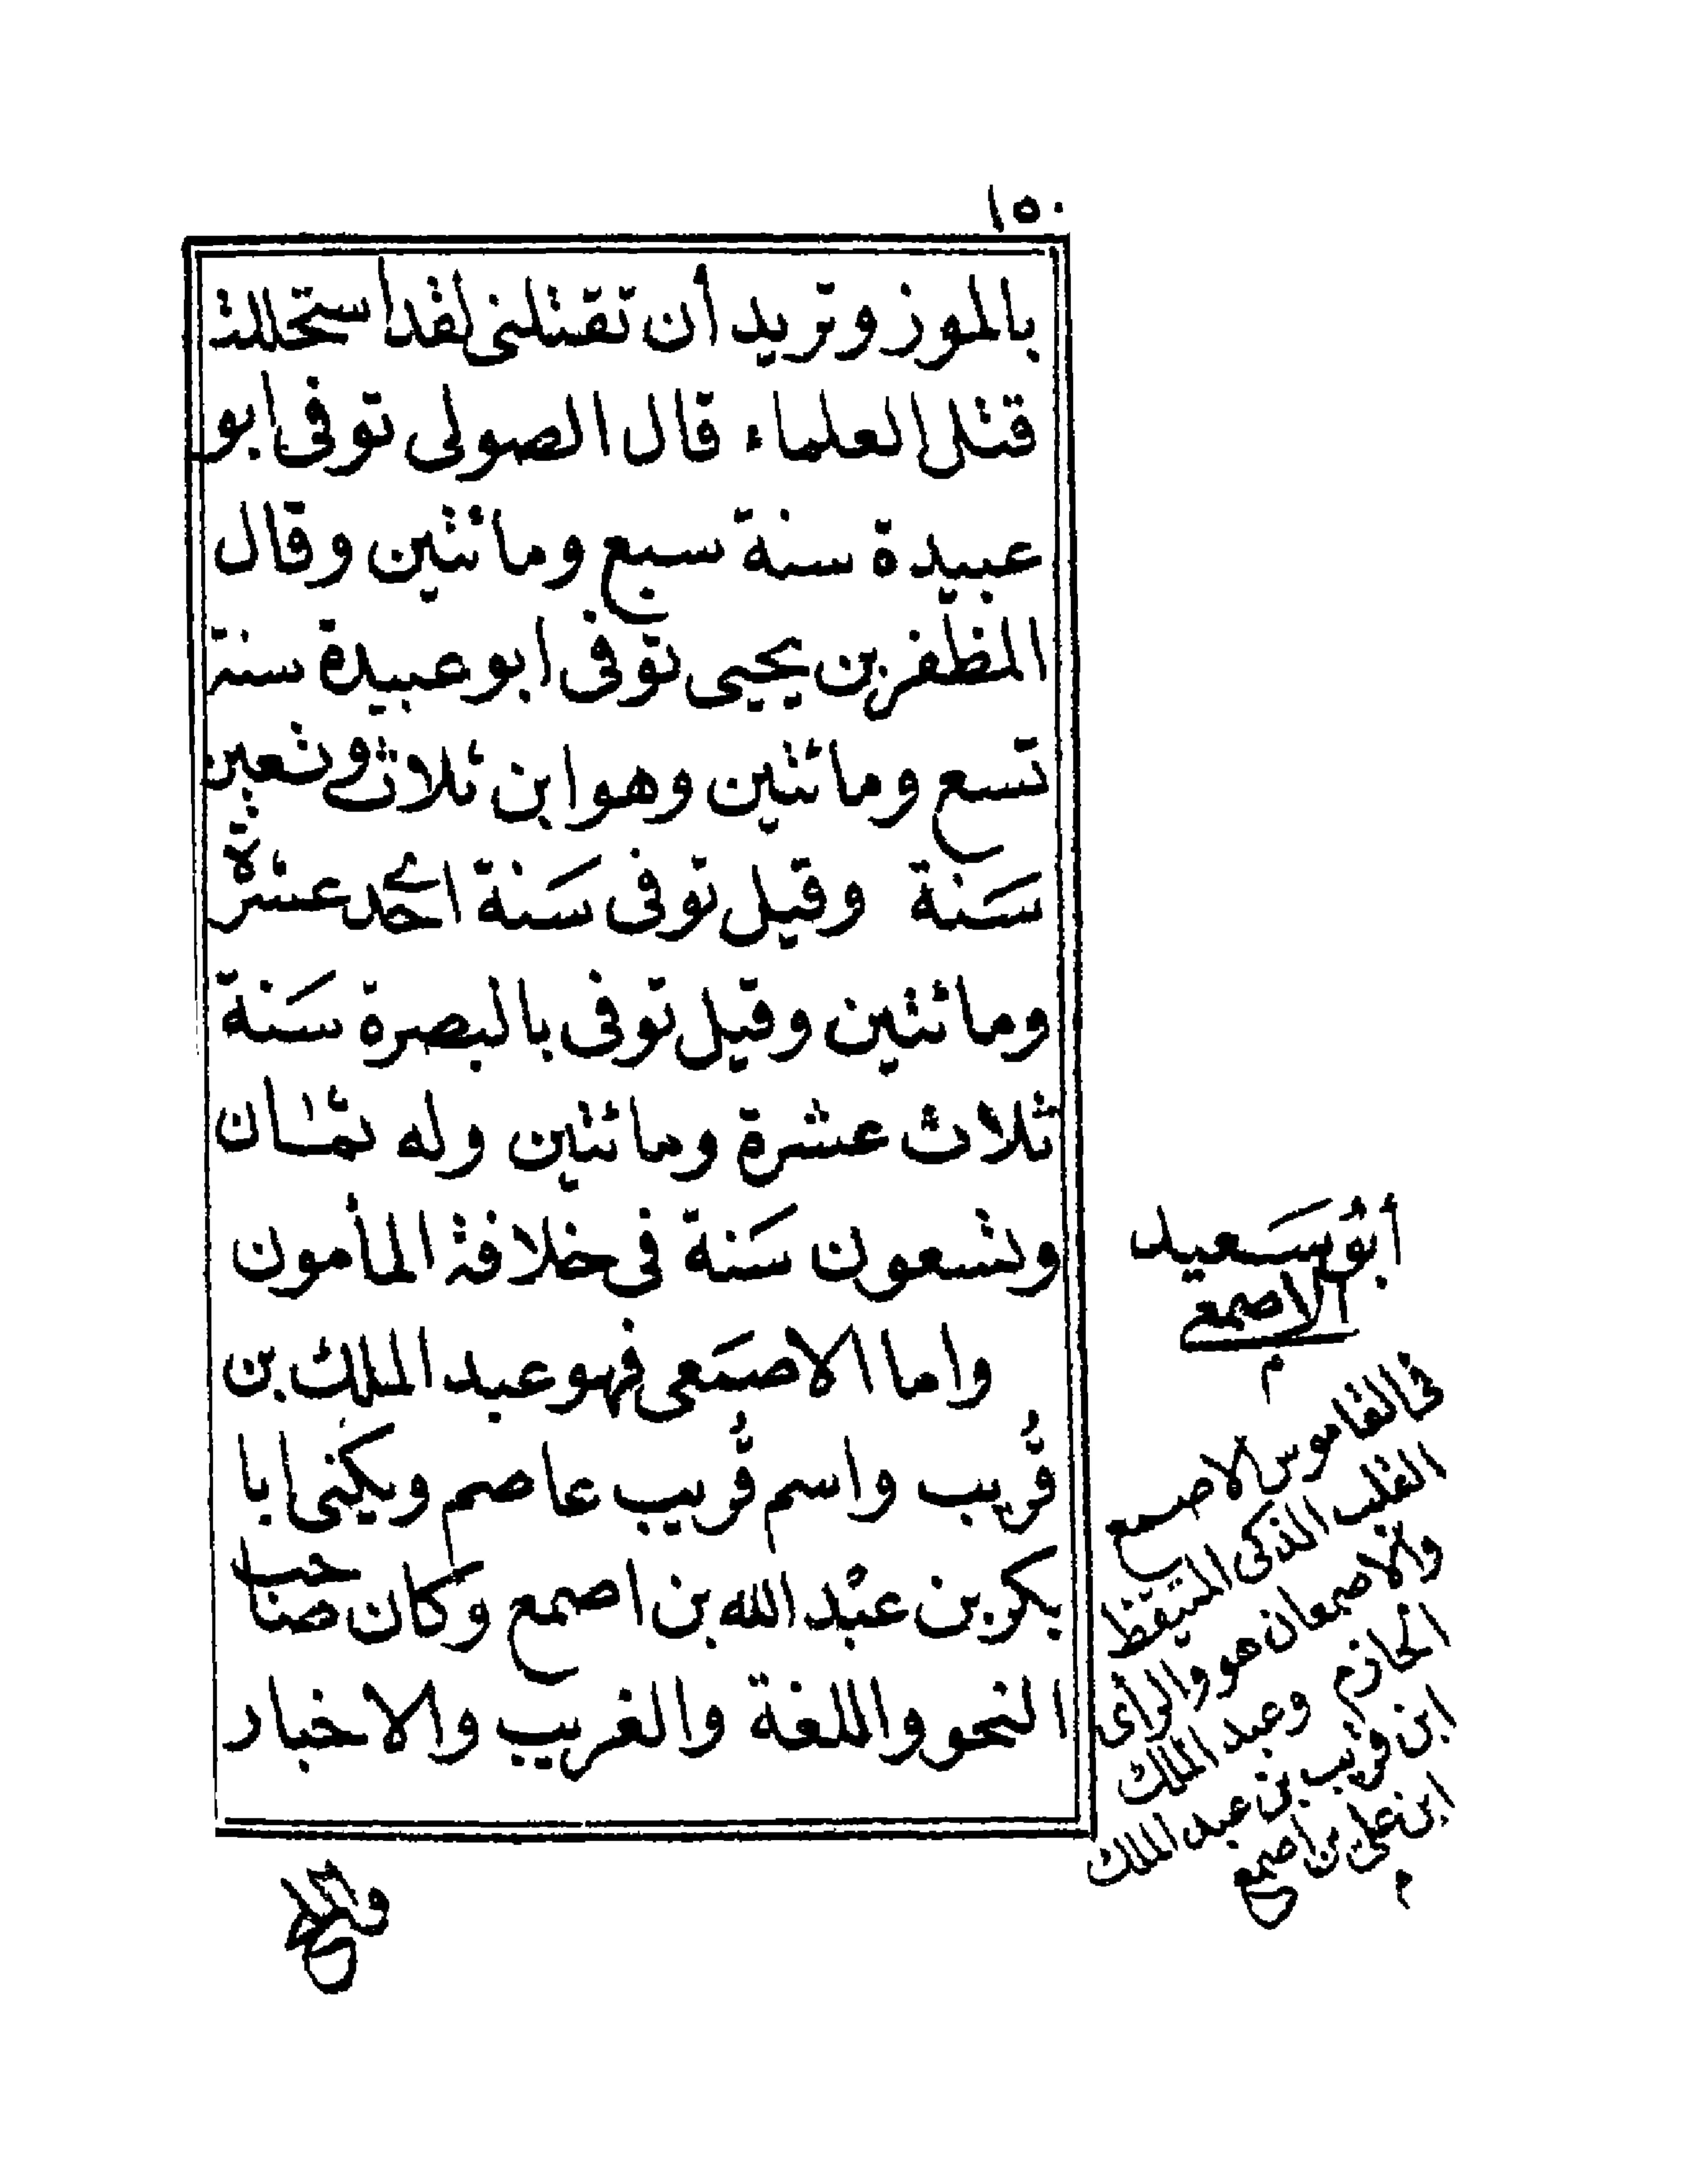 ١٥٠
بالموز وتريد أن تقتلنى لقد استحللت
قتل العلماء قال الصولى توفى ابو
عبيدة سنة سبع ومائتين وقال
المظفر بن يحيى توفى ابو عبيدة سنة
تسع ومائتين وهو ابن ثلاث وتسعين
سَنة وقيل توفى سَنة احدى عشرة
ومائتين وقيل توفى بالبصرة سَنة
ثلاث عشرة ومائتين وله ثمان
وتسعون سَنة فى خلافة المأمون
واما الاصمَعى فهو عبد الملك بن
قُريب واسم قُريب عاصم ويكنى ابا
بكر بن عبْد الله بن اصمع وكان صاحب
النحو واللغة والغريب والاخبار
أبوُ سَعيد
الاصمعى
م
فى القاموس الاصمع
القلب الذكى المتيقظ
والاصمعان هو والراى
الحازم وعبد الملك
ابن قريب بن عبد الملك
ابن على بن اصمع
م
والملح